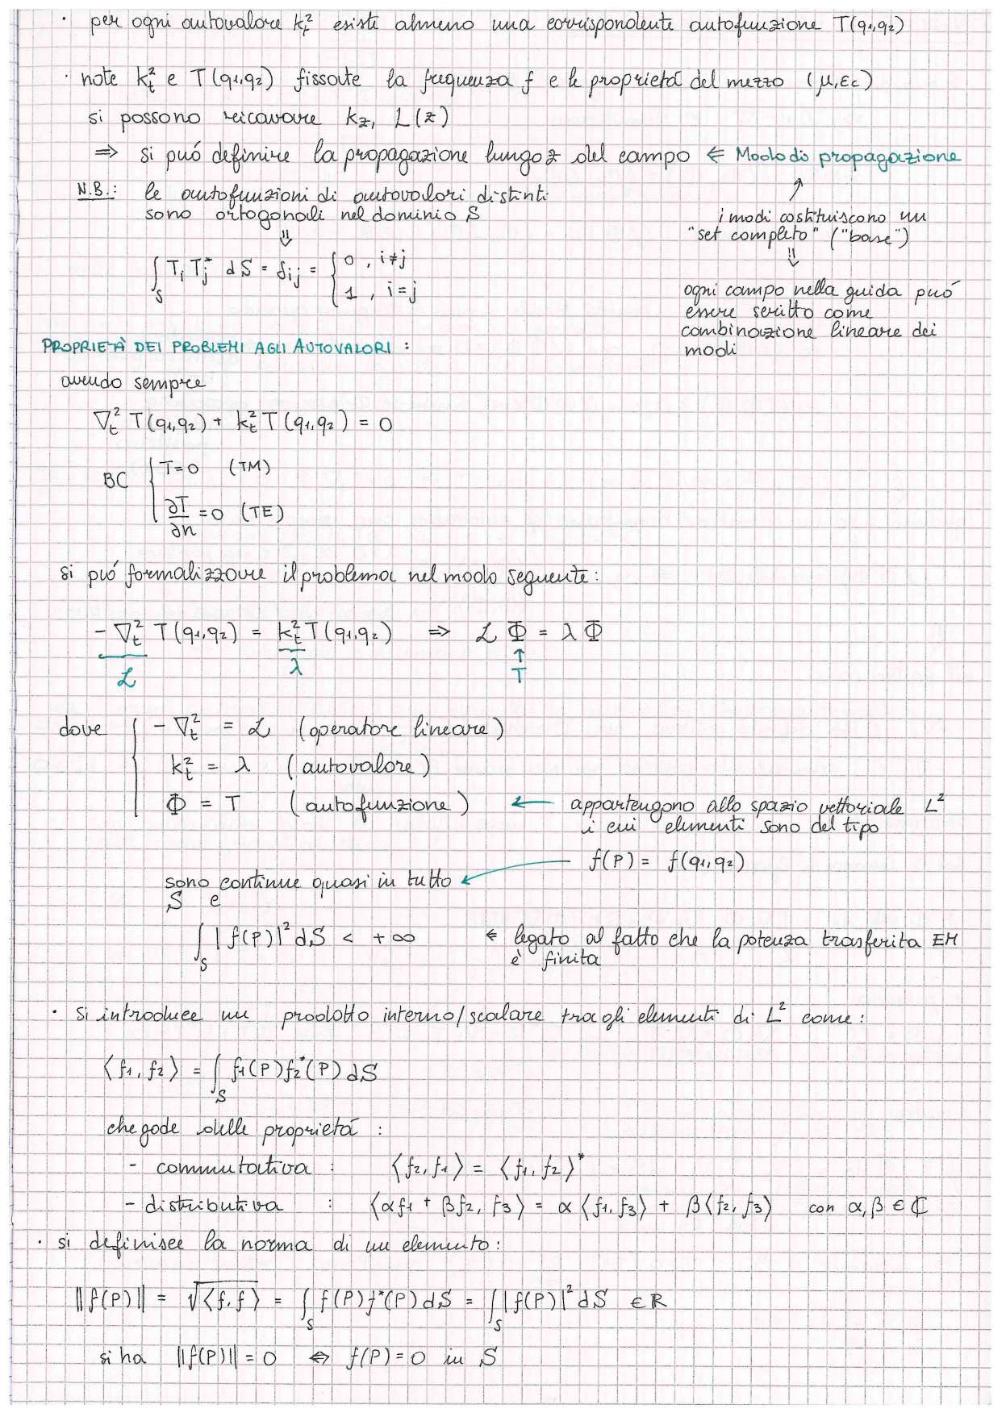 · per ogni autovalore k_t² esiste almeno una corrispondente autofunzione T(q₁,q₂)
· note k_t² e T(q₁,q₂) fissate la frequenza f e le proprietà del mezzo (μ,εc)
si possono ricavare k_z, L(z)
⇒ si può definire la propagazione lungo z del campo ⇐ Modo di propagazione
N.B.: le autofunzioni di autovalori distinti
sono ortogonali nel dominio S
⇓
∫_S T_i T_j* dS = δ_ij = { 0 , i≠j
1 , i=j
↗
i modi costituiscono un
"set completo" ("base")
⇓
ogni campo nella guida può
essere scritto come
combinazione lineare dei
modi
PROPRIETÀ DEI PROBLEMI AGLI AUTOVALORI :
avendo sempre
∇_t² T(q₁,q₂) + k_t² T(q₁,q₂) = 0
BC { T=0 (TM)
∂T/∂n = 0 (TE)
si può formalizzare il problema nel modo seguente:
-∇_t² T(q₁,q₂) = k_t² T(q₁,q₂) ⇒ ℒ Φ = λ Φ
ℒ λ ↑
T
dove { -∇_t² = ℒ (operatore lineare)
k_t² = λ (autovalore)
Φ = T (autofunzione) ← appartengono allo spazio vettoriale L²
i cui elementi sono del tipo
f(P) = f(q₁,q₂)
sono continue quasi in tutto ←
S e
∫_S |f(P)|² dS < +∞ ⇐ legato al fatto che la potenza trasferita EM
è finita
· Si introduce un prodotto interno/scalare tra gli elementi di L² come:
⟨f₁, f₂⟩ = ∫_S f₁(P) f₂*(P) dS
che gode delle proprietà :
- commutativa : ⟨f₂, f₁⟩ = ⟨f₁, f₂⟩*
- distributiva : ⟨αf₁ + βf₂, f₃⟩ = α⟨f₁, f₃⟩ + β⟨f₂, f₃⟩ con α,β ∈ ℂ
· si definisce la norma di un elemento:
‖f(P)‖ = √⟨f, f⟩ = ∫_S f(P) f*(P) dS = ∫_S |f(P)|² dS ∈ R
si ha ‖f(P)‖ = 0 ⇔ f(P) = 0 in S